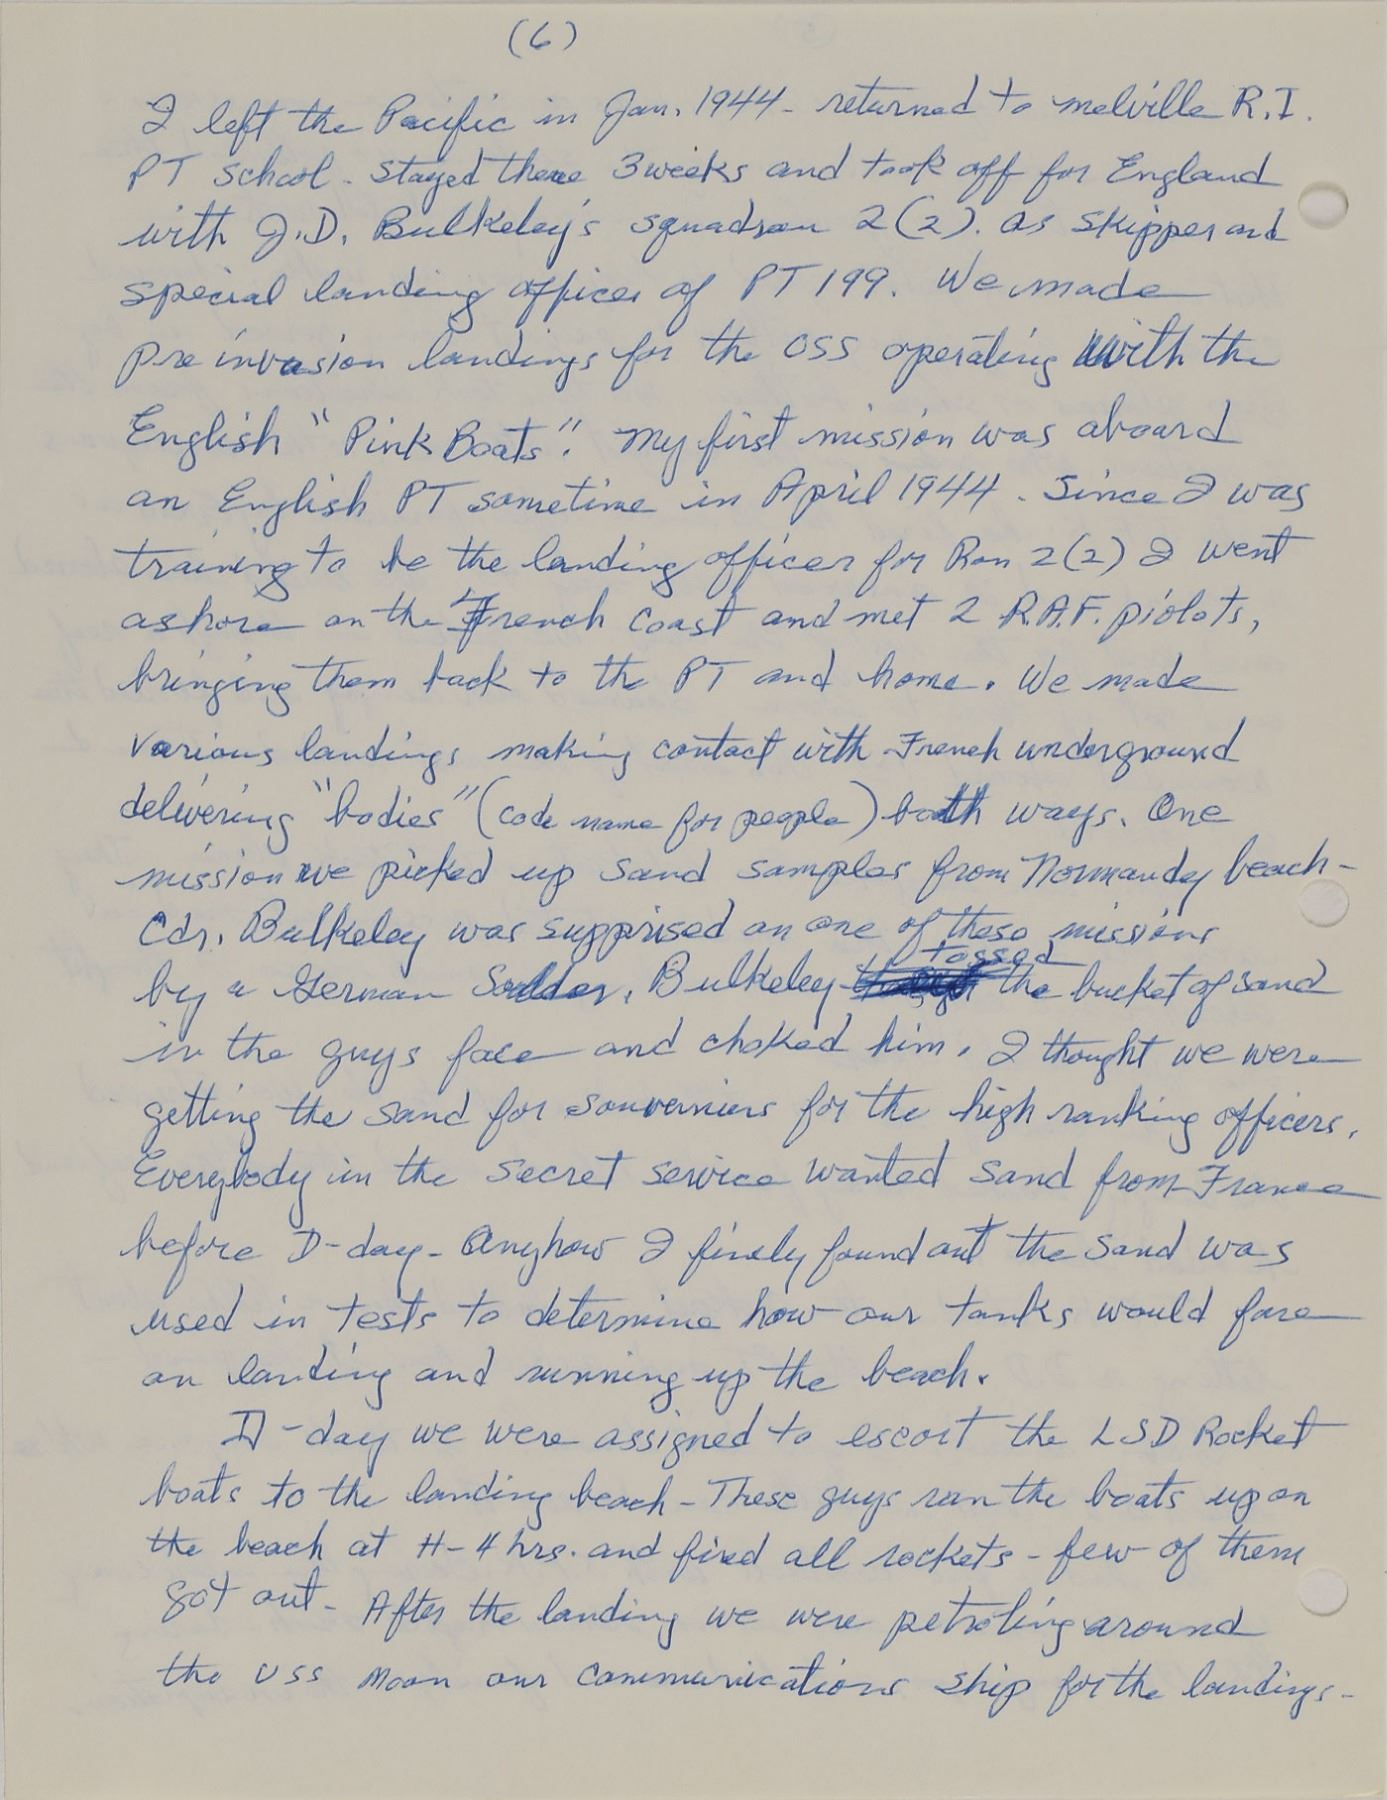 (6)
I left the Pacific in Jan. 1944 - returned to melville R.I.
PT School - Stayed there 3 weeks and took off for England
with J.D. Bulkeley's squadron 2(2). as Skipper and
special landing officer of PT 199. We made
pre invasion landings for the OSS operating with the
English "Pink Boats". My first mission was aboard
an English PT sometime in April 1944 - Since I was
training to be the landing officer for Ron 2(2) I went
ashore on the French coast and met 2 R.A.F. piolots,
bringing them back to the PT and home. We made
various landings making contact with French underground
delivering "bodies" (code name for people) both ways. One
mission we picked up sand samples from Normandy beach -
Cdr. Bulkeley was supprised on one of these missions
by a German Soldder, Bulkeley tossed the bucket of sand
in the guys face and choked him. I thought we were
getting the sand for souverniers for the high ranking officers.
Everybody in the secret service wanted sand from France
before D-day - Anyhow I finely found out the sand was
used in tests to determine how our tanks would fare
on landing and running up the beach.
D-day we were assigned to escort the LSD Rocket
boats to the landing beach - These guys ran the boats up on
the beach at H-4 hrs. and fired all rockets - few of them
got out - After the landing we were petroling around
the USS Moon our communications ship for the landings -